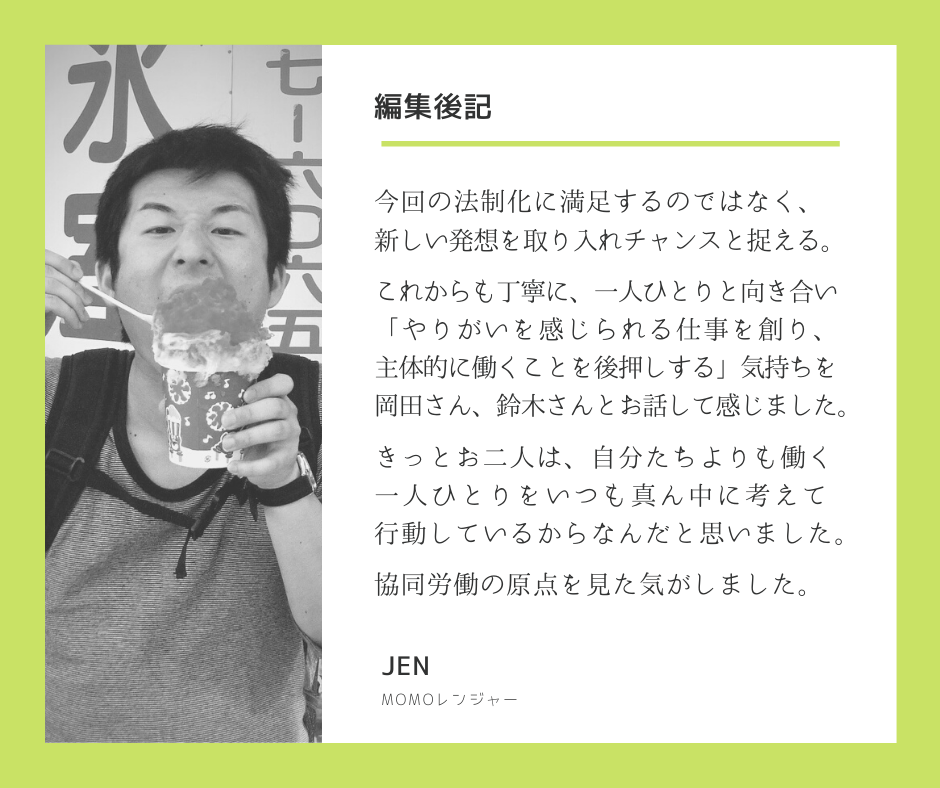 氷
七一六〇六五
編集後記
今回の法制化に満足するのではなく、
新しい発想を取り入れチャンスと捉える。
これからも丁寧に、一人ひとりと向き合い
「やりがいを感じられる仕事を創り、
主体的に働くことを後押しする」気持ちを
岡田さん、鈴木さんとお話して感じました。
きっとお二人は、自分たちよりも働く
一人ひとりをいつも真ん中に考えて
行動しているからなんだと思いました。
協同労働の原点を見た気がしました。
JEN
MOMOレンジャー